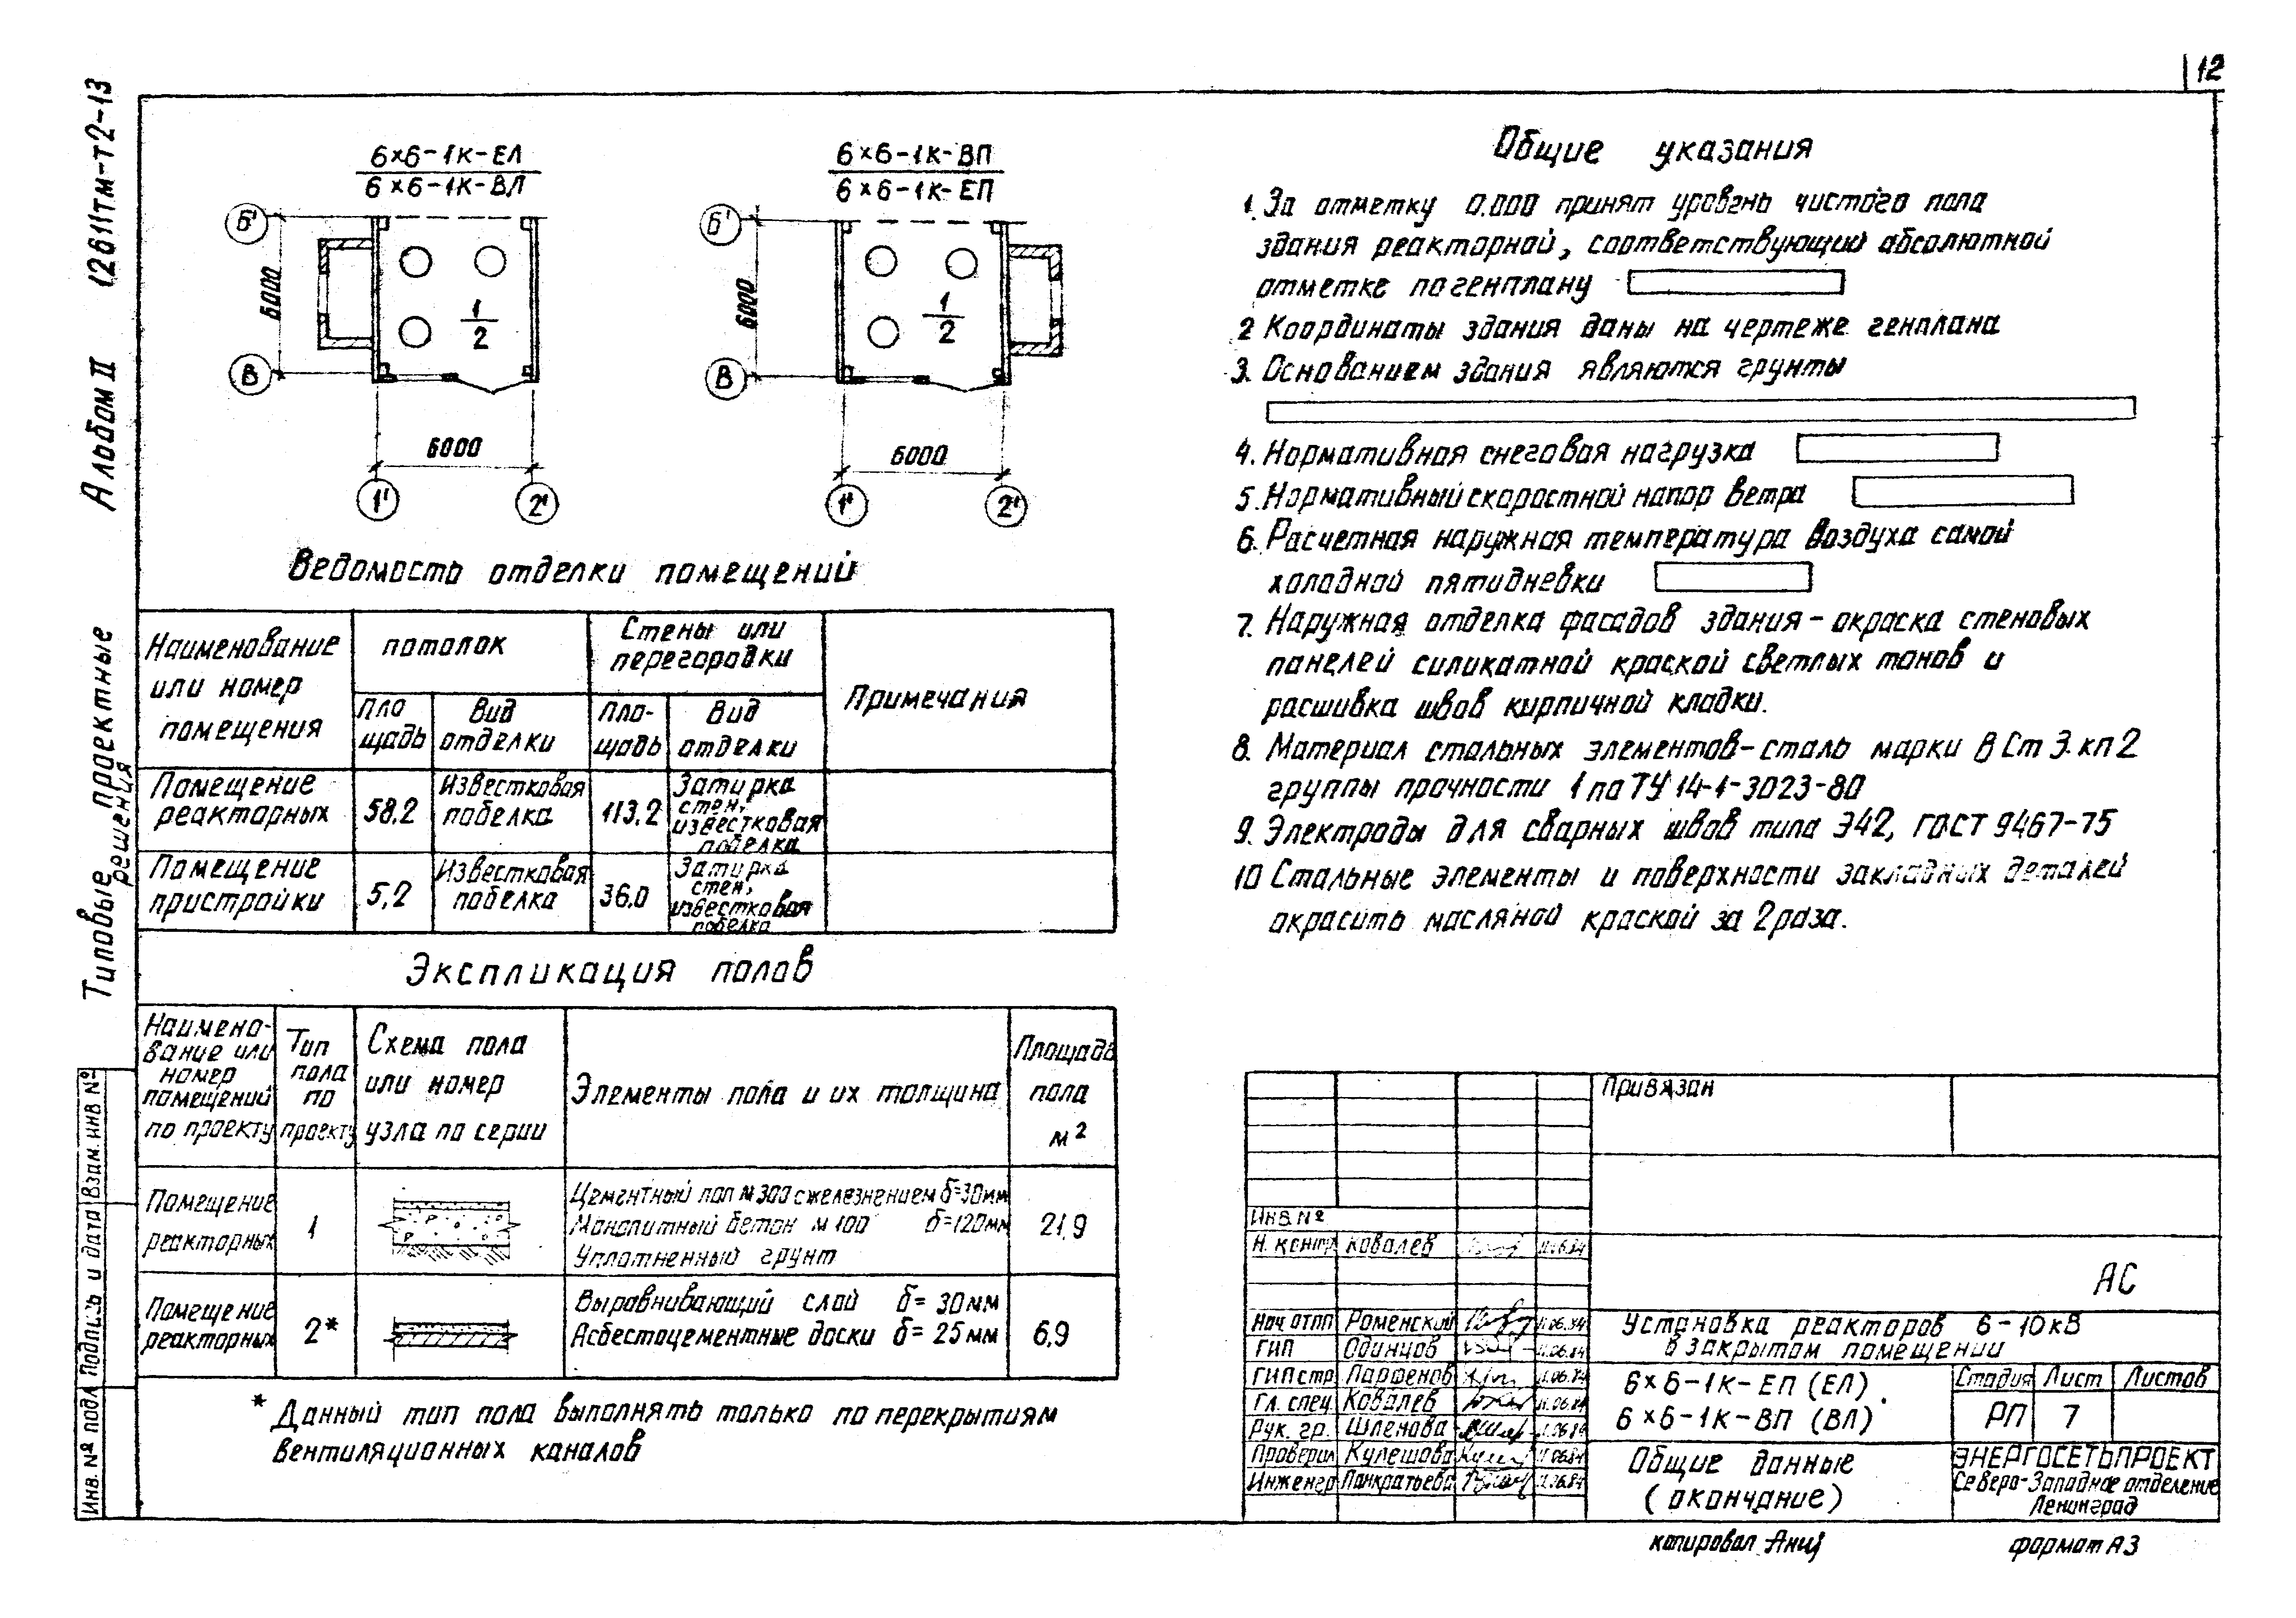 12
Типовые проектные решения Альбом II 12611тм-т2-13
6×6-1К-ЕЛ
6×6-1К-ВЛ
Б'
6000
В
1
2
6000
1'
2'
6×6-1К-ВП
6×6-1К-ЕП
Б'
6000
В
1
2
6000
1'
2'
Ведомость отделки помещений
Наименование или номер помещения
потолок
Стены или перегородки
Примечания
Пло щадь
Вид отделки
Пло- щадь
Вид отделки
Помещение реакторных
58,2
Известковая побелка
113,2
Затирка стен, известковая побелка
Помещение пристройки
5,2
Известковая побелка
36,0
Затирка стен, известковая побелка
Экспликация полов
Наимено- вание или номер помещений по проекту
Тип пола по проекту
Схема пола или номер узла по серии
Элементы пола и их толщина
Площадь пола м²
Помещение реакторных
1
Цементный пол М300 с железнением δ=30мм
Монолитный бетон М100 δ=120мм
Уплотненный грунт
21,9
Помещение реакторных
2*
Выравнивающий слой δ=30мм
Асбестоцементные доски δ=25мм
6,9
* Данный тип пола выполнять только по перекрытиям
вентиляционных каналов
Общие указания
1. За отметку 0.000 принят уровень чистого пола
здания реакторной, соответствующий абсолютной
отметке по генплану
2 Координаты здания даны на чертеже генплана
3. Основанием здания являются грунты
4. Нормативная снеговая нагрузка
5. Нормативный скоростной напор ветра
6. Расчетная наружная температура воздуха самой
холодной пятидневки
7. Наружная отделка фасадов здания - окраска стеновых
панелей силикатной краской светлых тонов и
расшивка швов кирпичной кладки.
8. Материал стальных элементов - сталь марки ВСт3.кп2
группы прочности 1 по ТУ 14-1-3023-80
9. Электроды для сварных швов типа Э42, ГОСТ 9467-75
10 Стальные элементы и поверхности закладных деталей
окрасить масляной краской за 2 раза.
Привязан
Инв. №
Н. контр Ковалев 11.06.84
АС
Нач отп Роменский 11.06.84
ГИП Одинцов 11.06.84
ГИП стр Парфенов 11.06.84
Гл. спец. Ковалев 11.06.84
Рук. гр. Шленова 11.06.84
Проверил Кулешова 11.06.84
Инженер Панкратьева 11.06.84
Установка реакторов 6-10кВ
в закрытом помещении
6×6-1К-ЕП (ЕЛ)
6×6-1К-ВП (ВЛ)
Стадия Лист Листов
РП 7
Общие данные
(окончание)
ЭНЕРГОСЕТЬПРОЕКТ
Северо-Западное отделение
Ленинград
Инв. № подл Подпись и дата Взам. инв №
копировал
формат А3